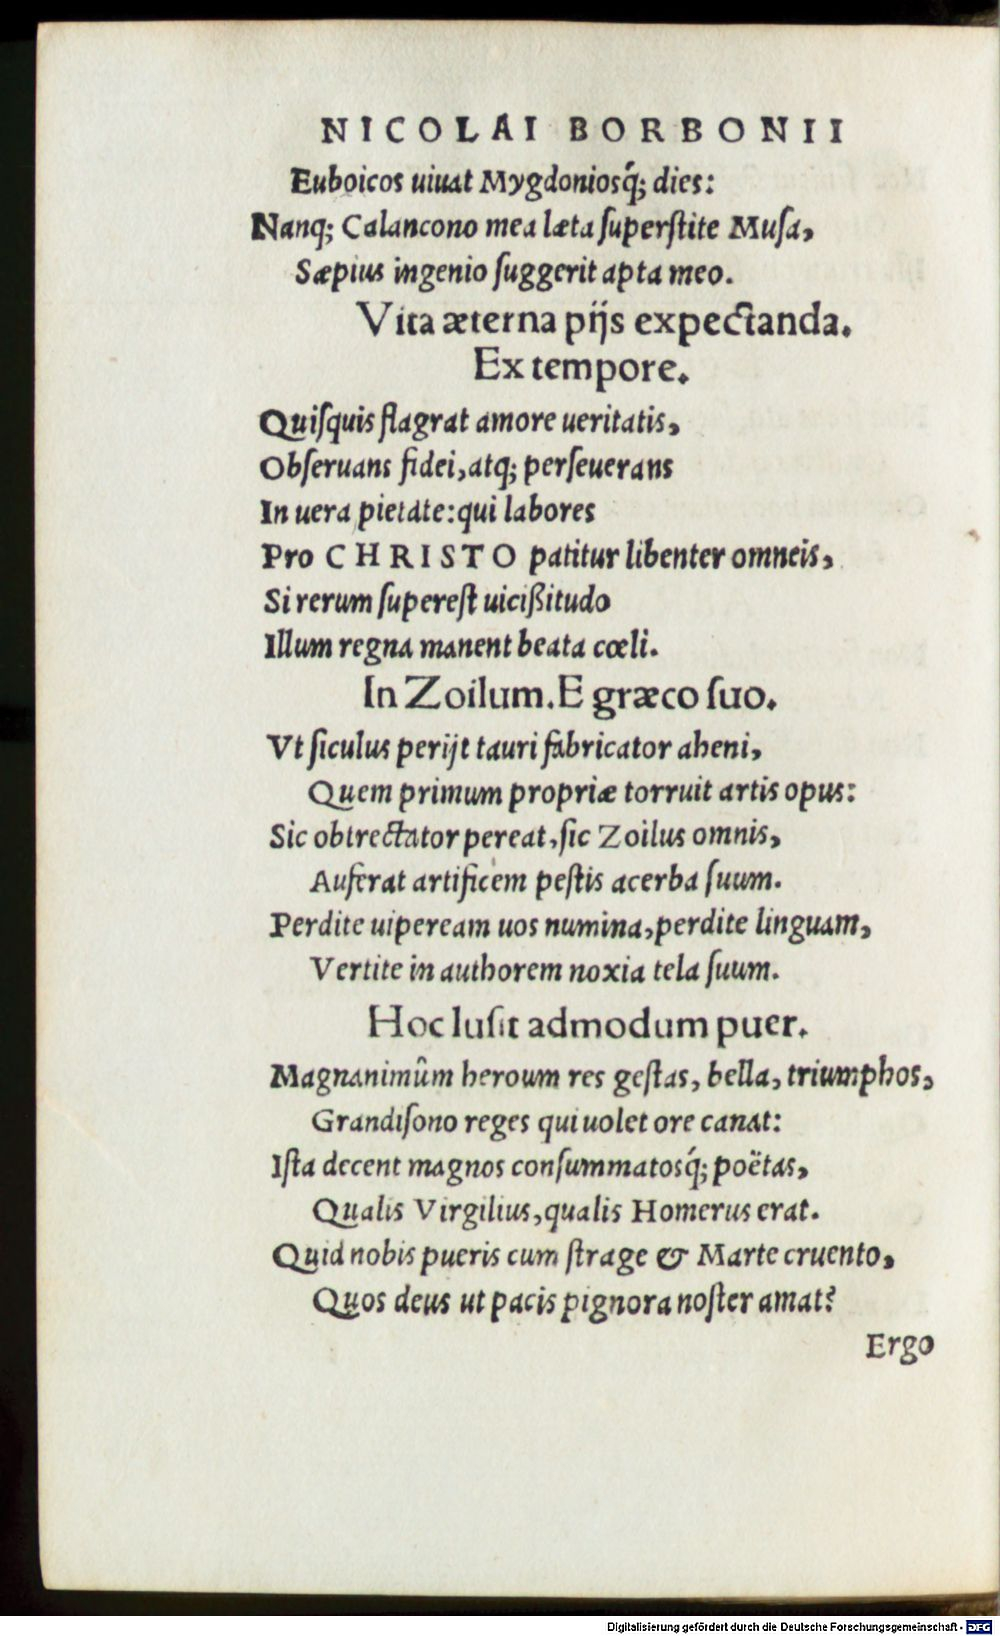 NICOLAI BORBONII
Euboicos uiuat Mygdoniosq́; dies:
Nanq; Calancono mea læta ſuperſtite Muſa,
Sæpius ingenio ſuggerit apta meo.
Vita æterna pijs expectanda.
Ex tempore.
Quiſquis flagrat amore ueritatis,
Obſeruans fidei, atq; perſeuerans
In uera pietate: qui labores
Pro CHRISTO patitur libenter omneis,
Si rerum ſupereſt uicißitudo
Illum regna manent beata cœli.
In Zoilum. E græco ſuo.
Vt ſiculus perijt tauri fabricator aheni,
Quem primum propriæ torruit artis opus:
Sic obtrectator pereat, ſic Zoilus omnis,
Auferat artificem peſtis acerba ſuum.
Perdite uipeream uos numina, perdite linguam,
Vertite in authorem noxia tela ſuum.
Hoc luſit admodum puer.
Magnanimûm heroum res geſtas, bella, triumphos,
Grandiſono reges qui uolet ore canat:
Iſta decent magnos conſummatosq́; poëtas,
Qualis Virgilius, qualis Homerus erat.
Quid nobis pueris cum ſtrage & Marte cruento,
Quos deus ut pacis pignora noſter amat?
Ergo
Digitalisierung gefördert durch die Deutsche Forschungsgemeinschaft - DFG